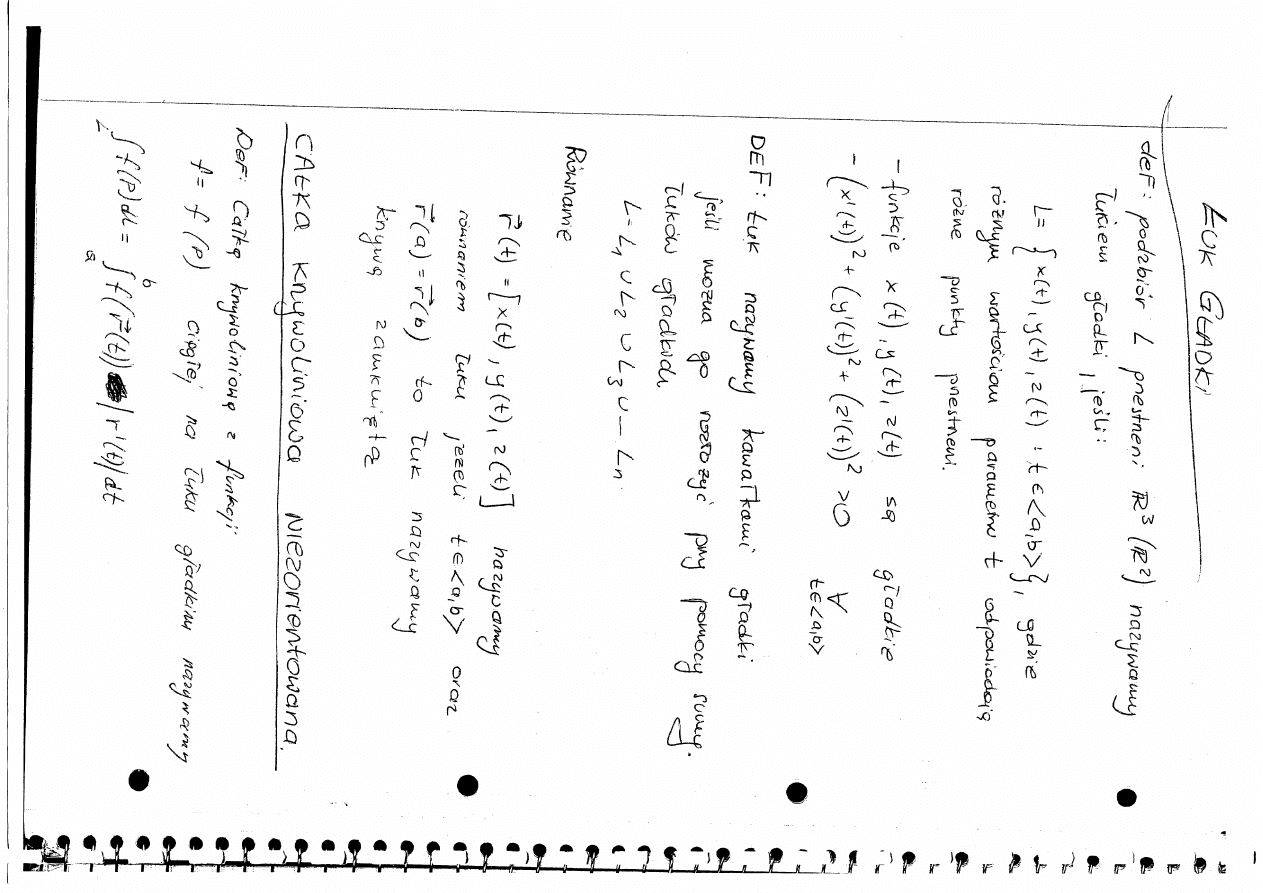 ŁUK GŁADKI
def: podzbiór L przestrzeni ℝ³ (ℝ²) nazywamy
łukiem gładki, jeśli:
L= {x(t), y(t), z(t) : t∈<a,b>}, gdzie
różnym wartościom parametru t odpowiadają
różne punkty przestrzeni.
- funkcje x(t), y(t), z(t) są gładkie
- (x'(t))² + (y'(t))² + (z'(t))² >0 ∀ t∈<a,b>
DEF: Łuk nazywamy kawałkami gładki
jeśli można go rozłożyć przy pomocy sumy.
łuków gładkich
L= L₁ ∪ L₂ ∪ L₃ ∪ — Lₙ
Równanie
r⃗(t) = [x(t), y(t), z(t)] nazywamy
równaniem łuku jeżeli t∈<a,b> oraz
r⃗(a) = r⃗(b) to łuk nazywamy
krzywą zamkniętą
CAŁKA krzywoliniowa NIEZORIENTOWANA.
DEF: Całką krzywoliniową z funkcji
f= f(P) ciągłej na łuku gładkim nazywamy
∫_L f(P)dL = ∫_a^b f(r⃗(t)) |r'(t)|dt